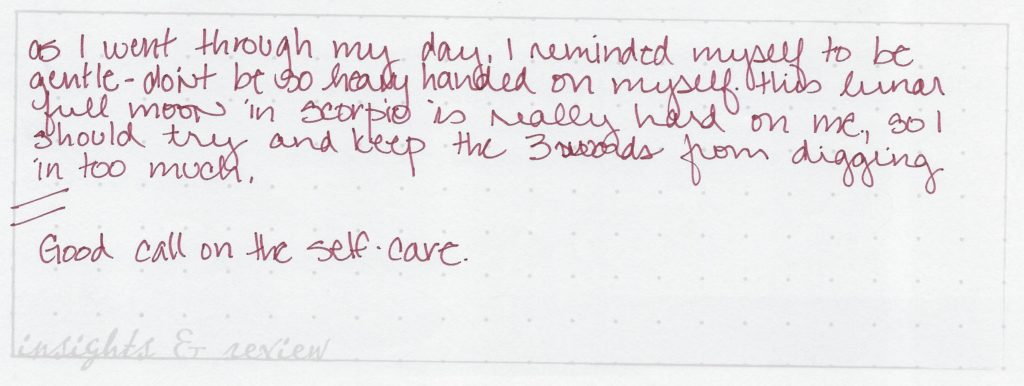 as I went through my day, I reminded myself to be
gentle - don't be so heavy handed on myself. this lunar
full moon in scorpio is really hard on me, so I
should try and keep the 3 swords from digging
in too much.
Good call on the self-care.
insights & review